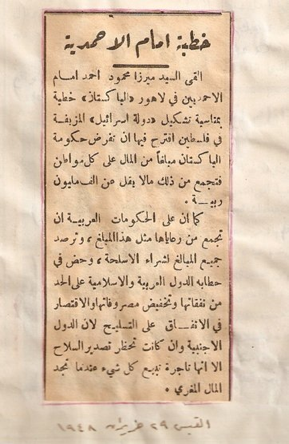 خطبة امام الاحمدية
القى السيد ميرزا محمود احمد امام
الاحمديين في لاهور «الباكستان» خطبة
بمناسبة تشكيل «دولة اسرائيل» المزيفة
في فلسطين اقترح فيها ان تفرض حكومة
الباكستان مبلغاً من المال على كل مواطن
فتجمع من ذلك مالا يقل عن الف مليون
ربية .
كما ان على الحكومات العربية ان
تجمع من رعاياها مثل هذا المبلغ ، وترصد
جميع المبالغ لشراء الاسلحة ، وحض في
خطابه الدول العربية والاسلامية على الحد
من نفقاتها وتخفيض مصروفاتها والاقتصار
في الانفاق على التسليح لان الدول
الاجنبية وان كانت تحظر تصدير السلاح
الا انها تاجرة تبيع كل شيء عندما تجد
المال المغري .
القبس ٢٩ حزيران ١٩٤٨